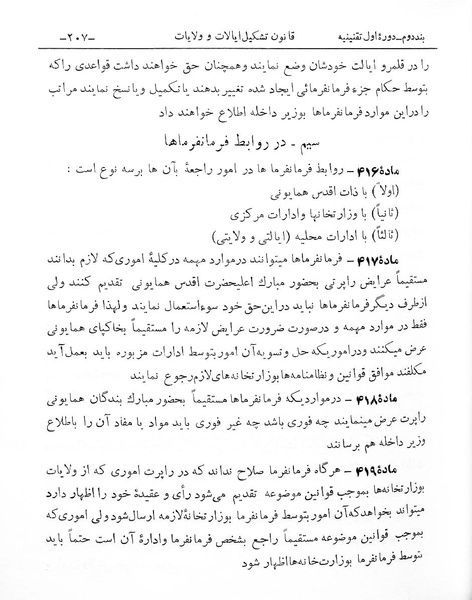 بند دوم ـ دورهٔ اول تقنینیه قانون تشکیل ایالات و ولایات ـ۲۰۷ـ
را در قلمرو ایالت خودشان وضع نمایند و همچنان حق خواهند داشت قواعدی را که
بتوسط حکام جزء فرمانفرمائی ایجاد شده تغییر بدهند یا تکمیل و یا نسخ نمایند مراتب
را در این موارد فرمانفرماها بوزیر داخله اطلاع خواهند داد
سیم ـ در روابط فرمانفرماها
مادهٔ ۴۱۶ ـ روابط فرمانفرما ها در امور راجعهٔ بآن ها برسه نوع است :
(اولاً) با ذات اقدس همایونی
(ثانیاً) با وزارتخانها و ادارات مرکزی
(ثالثاً) با ادارات محلیه (ایالتی و ولایتی)
مادهٔ ۴۱۷ ـ فرمانفرماها میتوانند در موارد مهمه در کلیهٔ اموری که لازم بدانند
مستقیماً عرایض راپرتی بحضور مبارك اعلیحضرت اقدس همایونی تقدیم کنند ولی
از طرف دیگر فرمانفرماها نباید در این حق خود سوء استعمال نمایند و لهذا فرمانفرماها
فقط در موارد مهمه و در صورت ضرورت عرایض لازمه را مستقیماً بخاکپای همایونی
عرض میکنند و در اموریکه حل و تسویه آن امور بتوسط ادارات مزبوره باید بعمل آید
مکلفند موافق قوانین و نظامنامه ها بوزارتخانه های لازم رجوع نمایند
مادهٔ ۴۱۸ ـ در مواردیکه فرمانفرماها مستقیماً بحضور مبارك بندگان همایونی
راپرت عرض مینمایند چه فوری باشد چه غیر فوری باید مواد یا مفاد آن را باطلاع
وزیر داخله هم برسانند
مادهٔ ۴۱۹ ـ هرگاه فرمانفرما صلاح نداند که در راپرت اموری که از ولایات
بوزارتخانه ها بموجب قوانین موضوعه تقدیم می‌شود رأی و عقیدهٔ خود را اظهار دارد
میتواند بخواهد که آن امور بتوسط فرمانفرما بوزارتخانهٔ لازمه ارسال شود ولی اموری که
بموجب قوانین موضوعه مستقیماً راجع بشخص فرمانفرما و ادارهٔ آن است حتماً باید
بتوسط فرمانفرما بوزارت خانه ها اظهار شود